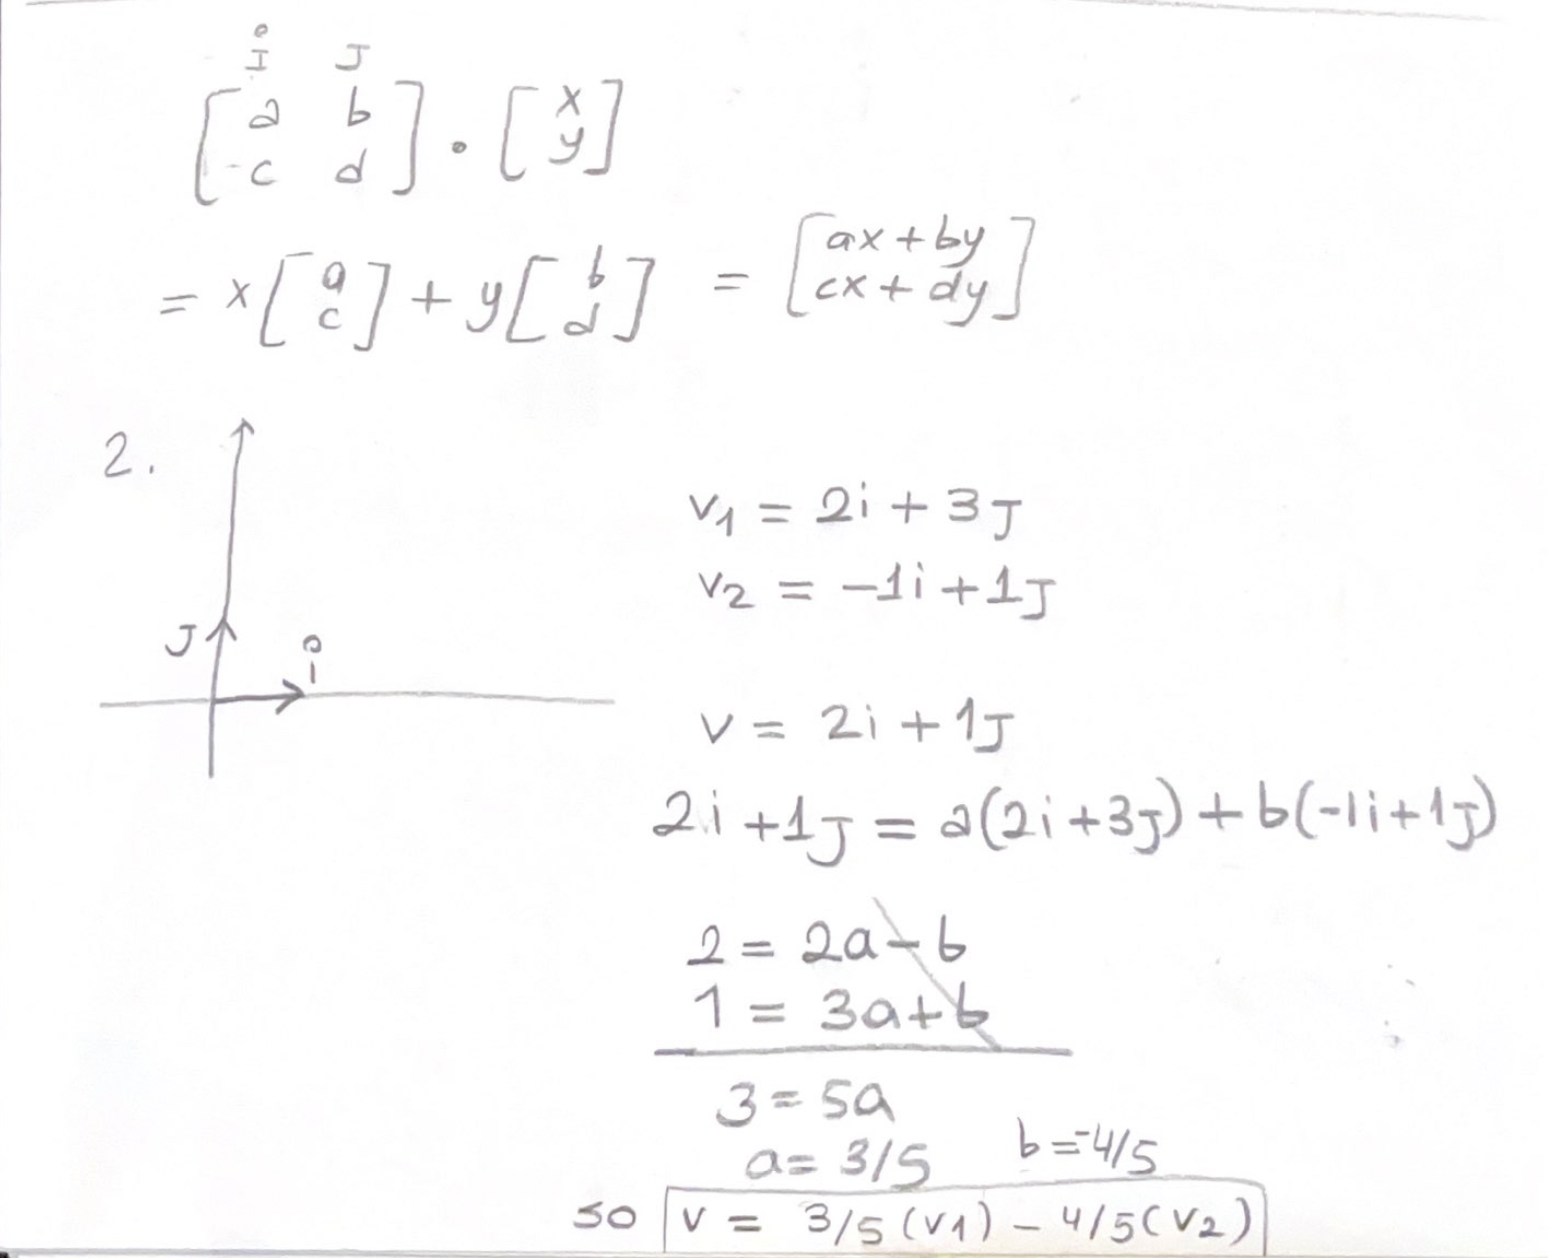 i J
[a b
c d] · [x
y]
= x[a
c] + y[b
d] = [ax+by
cx+dy]
2.
J
i
v1 = 2i + 3J
v2 = -1i + 1J
v = 2i + 1J
2i + 1J = a(2i + 3J) + b(-1i + 1J)
2 = 2a - b
1 = 3a + b
3 = 5a
a = 3/5 b = -4/5
so v = 3/5 (v1) - 4/5 (v2)